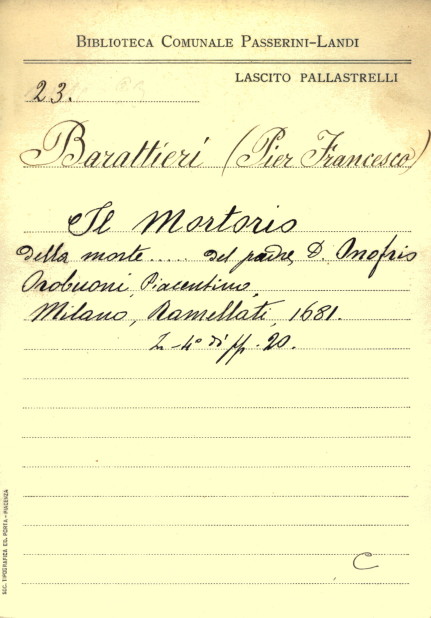 BIBLIOTECA COMUNALE PASSERINI-LANDI
LASCITO PALLASTRELLI
23.
Barattieri (Pier Francesco)
Il Mortorio
della morte..... del padre D. Onofrio
Orobuoni, Piacentino,
Milano, Ramellati, 1681.
In-4° di pp. 20.
C
SOC. TIPOGRAFICA ED. PORTA - PIACENZA